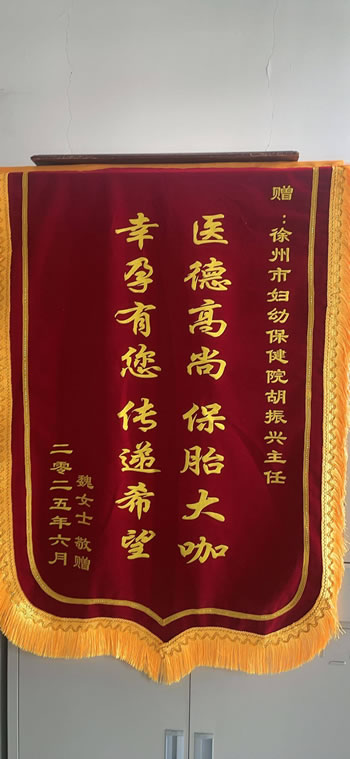 赠：徐州市妇幼保健院胡振兴主任
医德高尚 保胎大咖
幸孕有您 传递希望
魏女士 敬赠
二零二五年六月